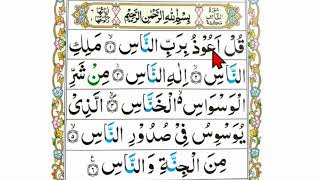 بِسْمِ اللّٰهِ الرَّحْمٰنِ الرَّحِيْمِ
قُلْ اَعُوْذُ بِرَبِّ النَّاسِ ۝١ مَلِكِ
النَّاسِ ۝٢ اِلٰهِ النَّاسِ ۝٣ مِنْ شَرِّ
الْوَسْوَاسِ ۙ الْخَنَّاسِ ۝٤ الَّذِىْ
يُوَسْوِسُ فِىْ صُدُوْرِ النَّاسِ ۝٥
مِنَ الْجِنَّةِ وَالنَّاسِ ۝٦